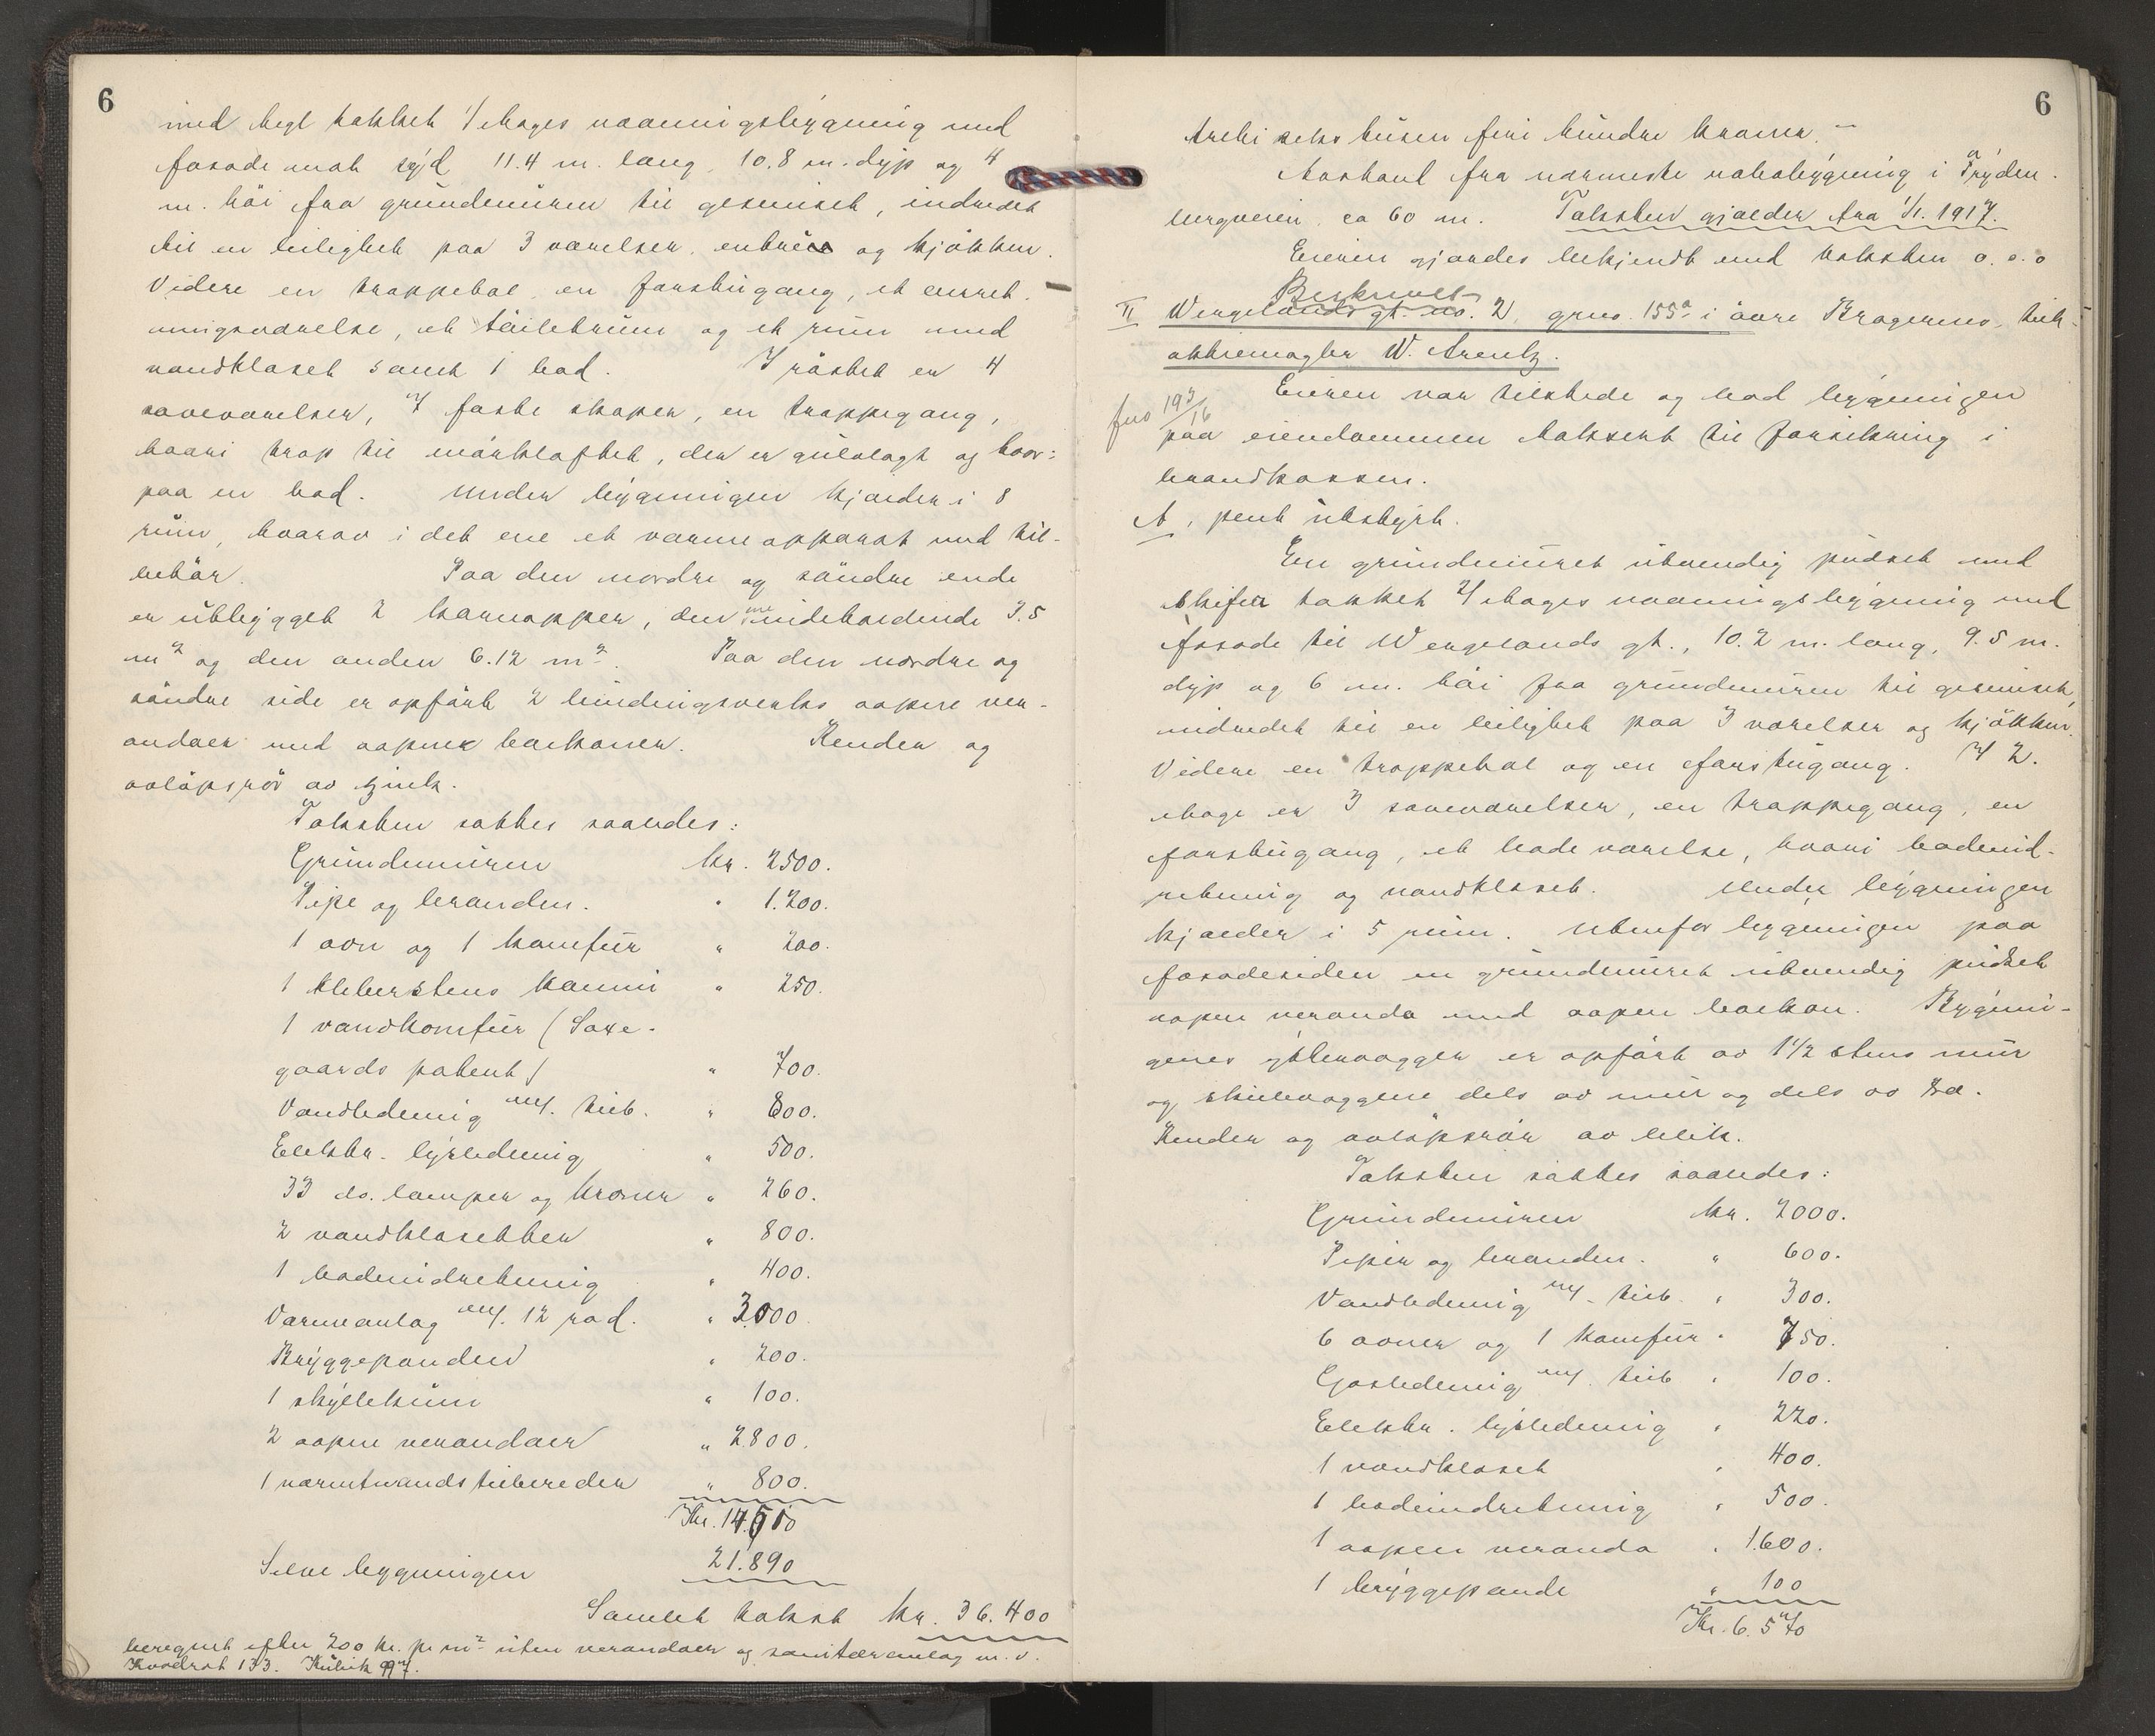 6
med tegl tækket 1/etages vaaningsbygning med
fasade mot syd 11.4 m. lang, 10.8 m. dyp og 4
m. høi fra grundmuren til gesimset, indredet
til en leilighet paa 3 værelser, entrée og kjøkken.
Videre en trappehal, en forstugang, et anret-
ningsværelse, et toiletrum og et rum med
vandkloset samt 1 bod. I røstet er 4
soveværelser, 7 faste skaper, en trappegang,
hvori trap til mørkloftet, der er gulvlagt og hvor-
paa en bod. Under bygningen kjælder i 8
rum, hvorav i det ene et varmeapparat med til-
behør. Paa den nordre og søndre ende
er utbygget 2 karnapper, den ene indeholdende 3.5
m² og den anden 6.12 m². Paa den nordre og
søndre side er opført 2 bindingsverks aapne ver-
andaer med aapne balkoner. Render og
avløpsrør av zink.
Taksten sattes saaledes:
Grundmuren kr. 2500.
Pipe og branden. " 1.200.
1 ovn og 1 komfur " 200.
1 klebersstens kamin " 250.
1 vandkomfur (Saxe-
gaards patent) " 700.
Vandledning m/. tilb. " 800.
Elektr. lysledning " 500.
33 do. lamper og kroner " 260.
2 vandklosetter " 800.
1 badeindretning " 400.
Varmeanlæg m/. 12 rad. " 3.000
Bryggepanden " 200.
1 skyllekum " 100.
2 aapne verandaer " 2.800.
1 varmtvandstilbereder " 800.
Kr. 14.510
Selve bygningen 21.890
Samlet takst kr. 36.400
beregnet efter 200 kr. pr m² uten verandaer og sanitæranlæg m. v.
Kvadrat 133. Kubik 997.
6
Arkitektshusen fire hundre kroner.
Avstand fra nærmeste nabobygning i Fryden-
bergveien ca 60 m. Taksten gjælder fra 1/1. 1917.
Eieren gjordes bekjendt med taksten o. s. v
Beskrevet
II Wergelands gt. no. 2, grno. 155ª i øvre Bragernes, tilh.
aktiemægler W. Arentz.
fno 193/16
Eieren var tilstede og bad bygningen
paa eiendommen taksert til forsikring i
brandkassen.
A, pent utstyrt.
En grundmuret utvendig pudset med
skifer tækket 2/etages vaaningsbygning med
fasade til Wergelands gt., 10.2 m. lang, 9.5 m.
dyp og 6 m. høi fra grundmuren til gesimset,
indredet til en leilighet paa 3 værelser og kjøkken.
Videre en trappehal og en forstugang. I 2.
etage er 3 soveværelser, en trappegang, en
forstugang, et badeværelse, hvori badeind-
retning og vandkloset. Under bygningen
kjælder i 5 rum. Utenfor bygningen paa
fasadesiden en grundmuret utvendig pudset
aapen veranda med aapen balkon. Bygnin-
genes ydervægger er opført av 1 1/2 stens mur
og skillevæggene dels av mur og dels av træ.
Render og avløpsrør av blik.
Taksten sattes saaledes:
Grundmuren kr. 2000.
Piper og branden. " 600.
Vandledning m/. tilb. " 300.
6 ovner og 1 komfur " 750.
Gasledning m/. tilb " 100.
Elektr. lysledning " 220.
1 vandkloset " 400.
1 badeindretning " 500.
1 aapen veranda " 1.600.
1 bryggepande " 100
Kr. 6.570